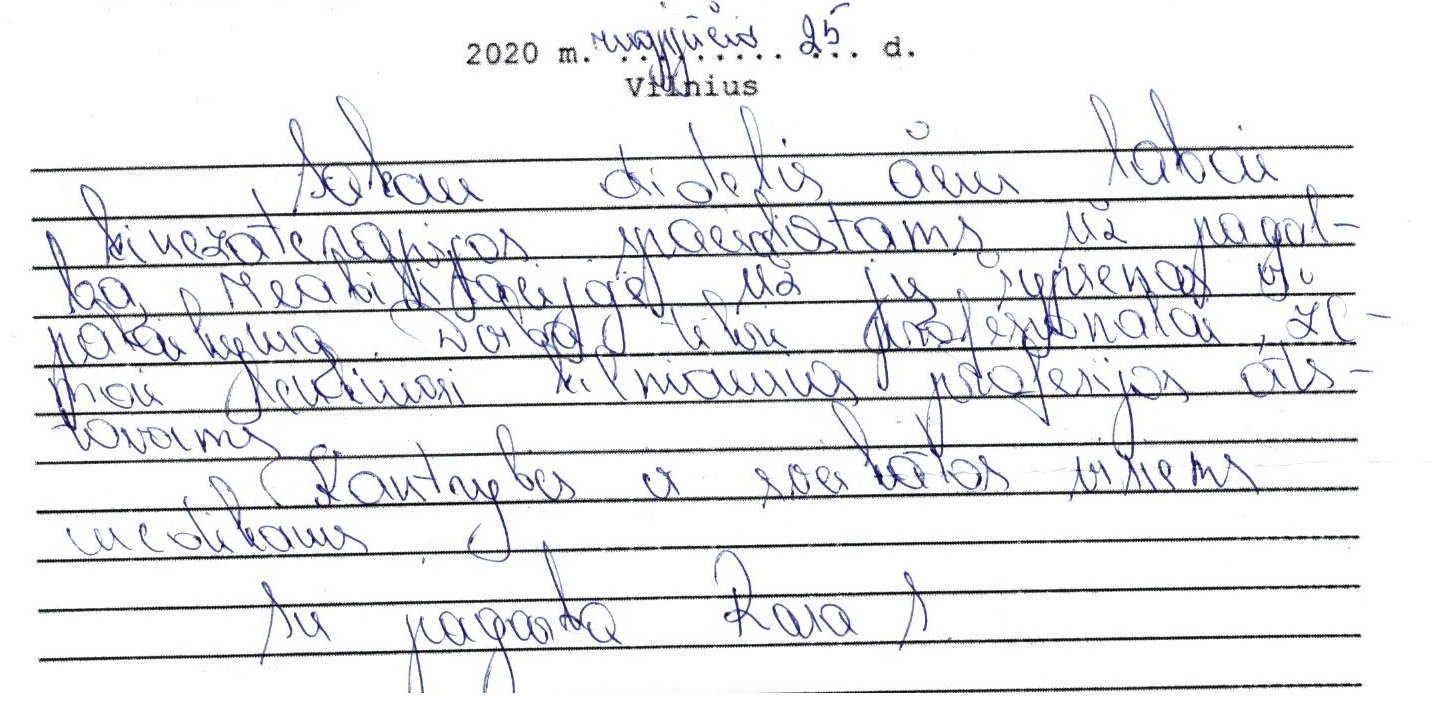 2020 m. rugpjūčio 25 d.
Vilnius
Sakau didelis ačiū labai
kinezaterapijos specialistams už pagal-
bą, reabilitacijoje, už jų šypsenas ir
palaikymą. Dirba tikri profesionalai, že-
mai lenkiuosi kilniausios profesijos ats-
tovams
Kantrybės ir sveikatos visiems
medikams.
Su pagarba Rasa S.